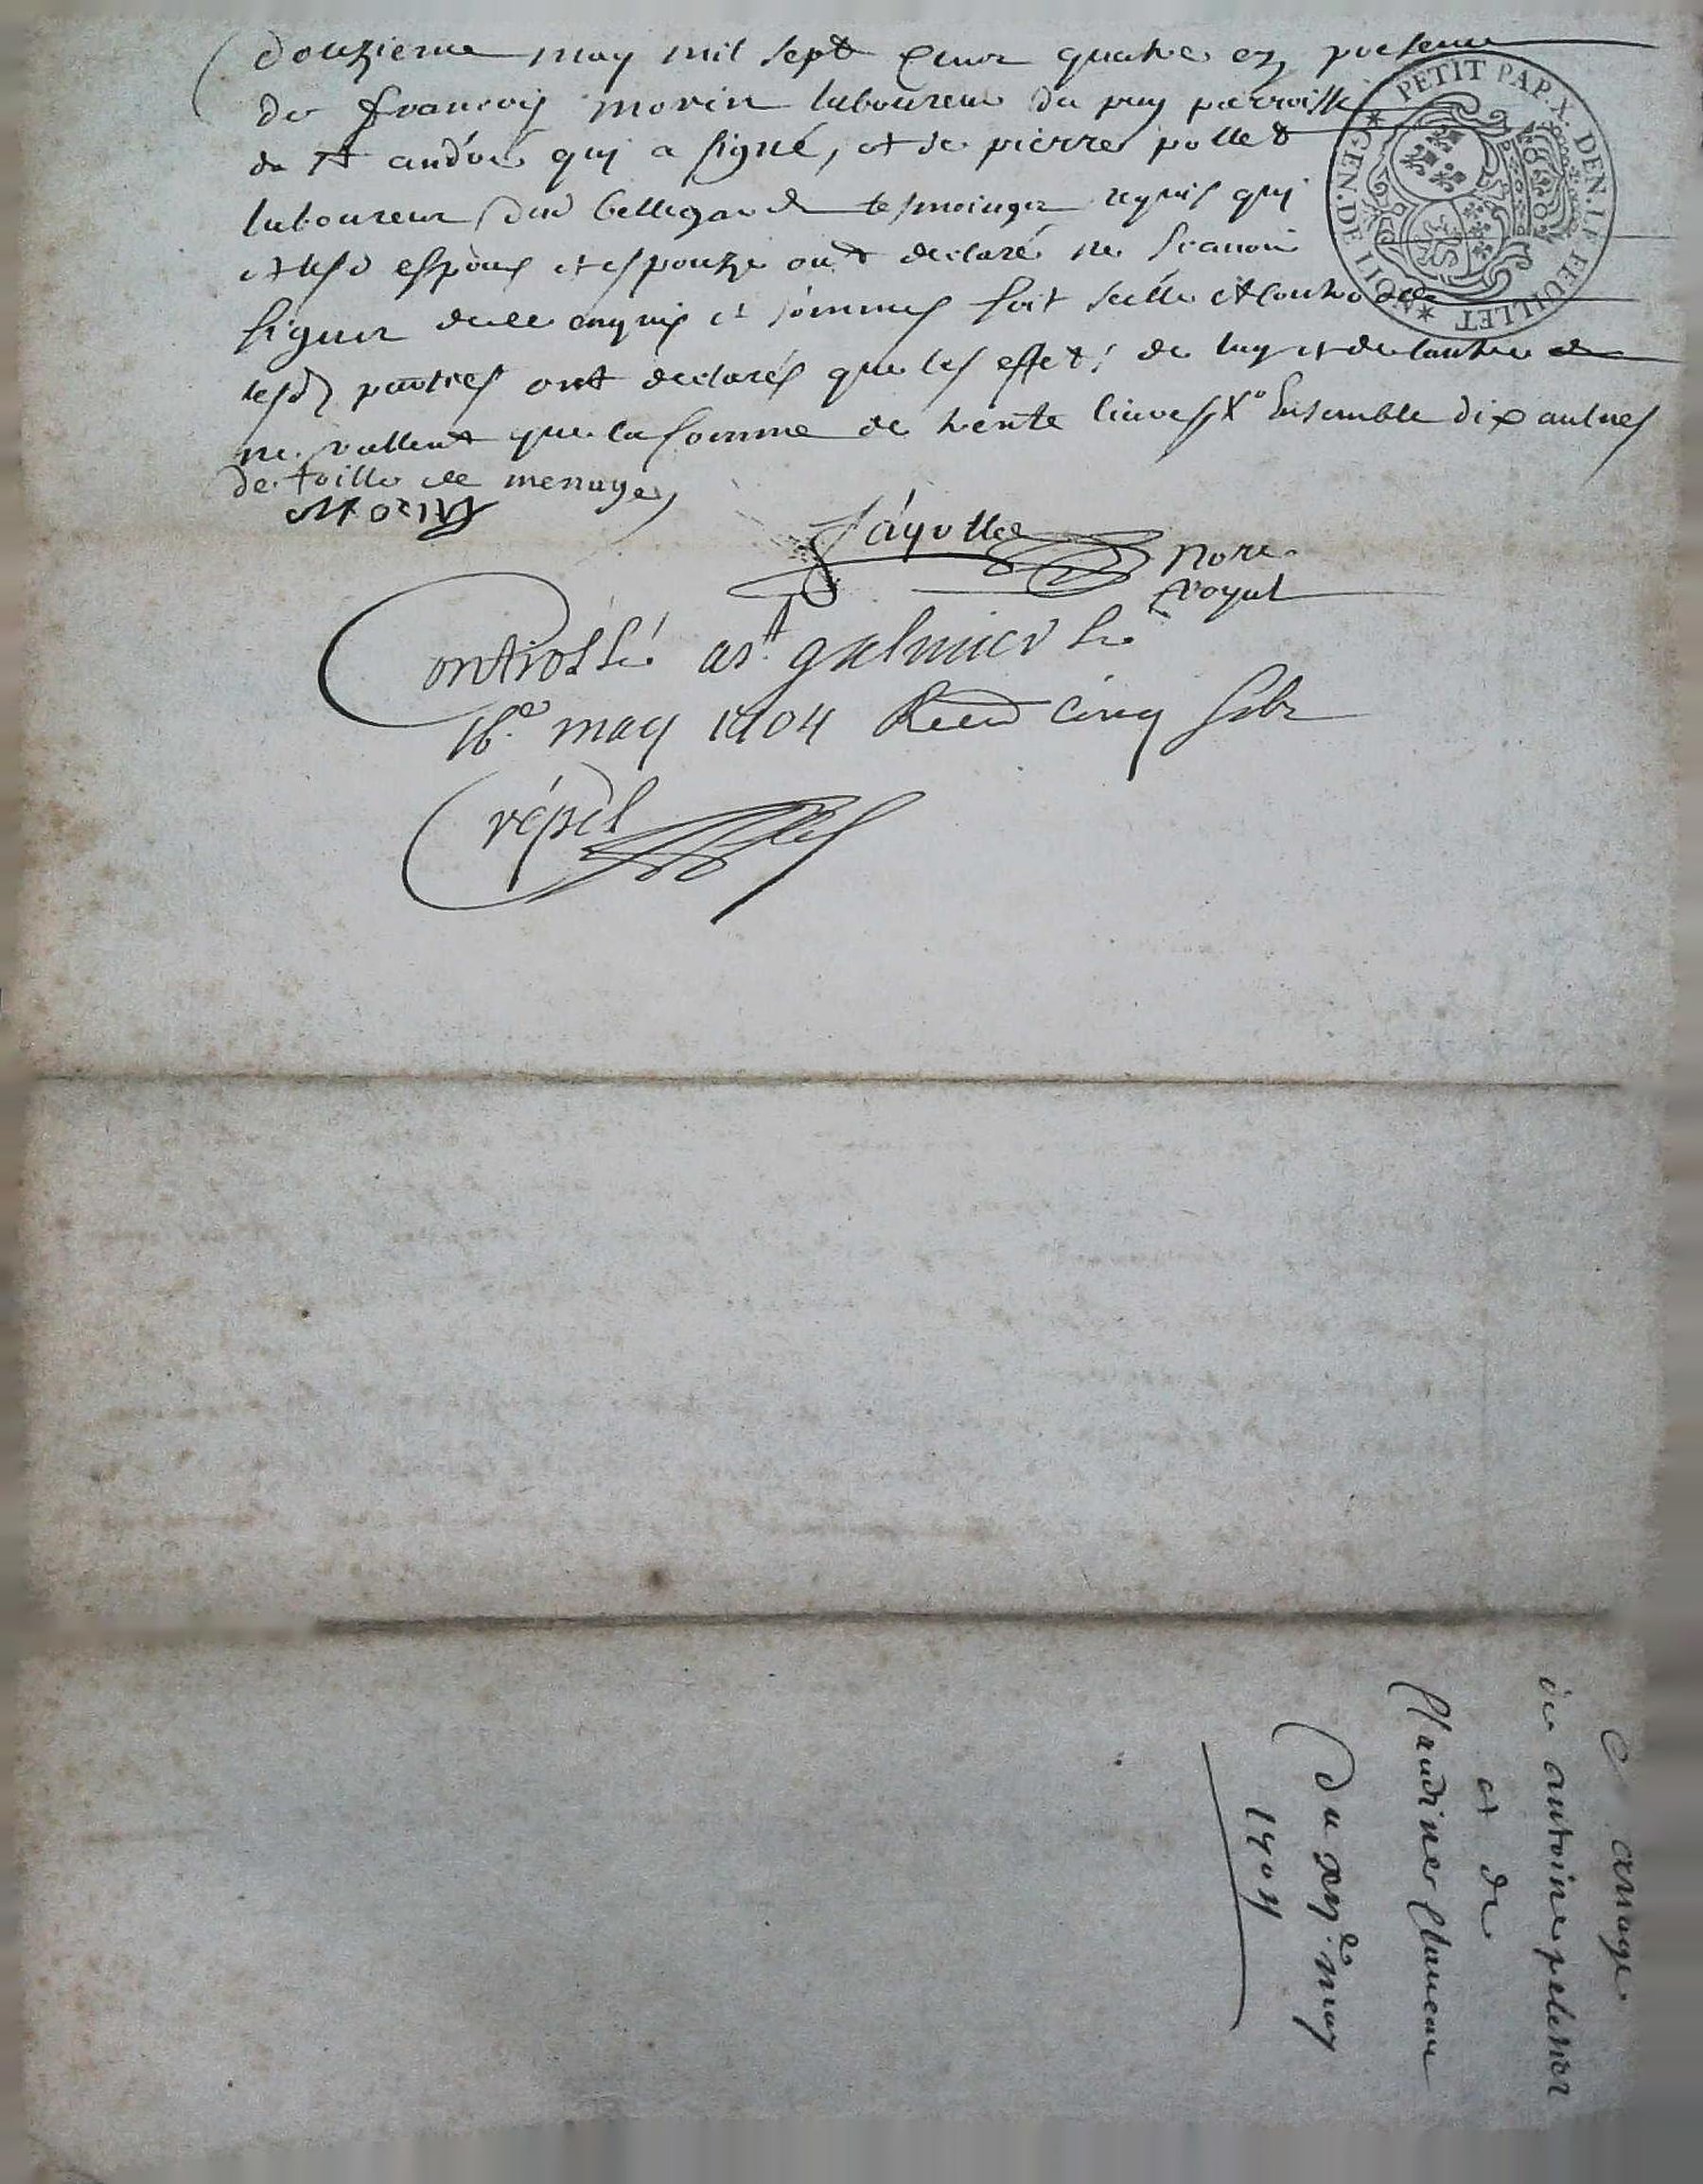 douzieme may mil sept cens quatre en presence
de françois morin laboureur du puy parroisse
de st andré qui a signé, et de pierre pollet
laboureur dud bellegarde tesmoings requis qui
et lesd espoux et espouze ont declaré ne scauoir
signer de ce enquis et sommes soit scellé et controollé
lesd parties ont declarés que les effets de luy et de lautre
ne vallent que la somme de trente liures Xo Ensemble dix aulnes
de toille de menage,
MORIN
fayolle Nore
Royal
Controllé a st galmier le
16e may 1704 Receu cinq sols
Crépet
PETIT PAP. X. DEN. LE FEUILLET * GEN. DE LION *
mariage
de antoine pelissier
et de
Claudine
du xije may
1704